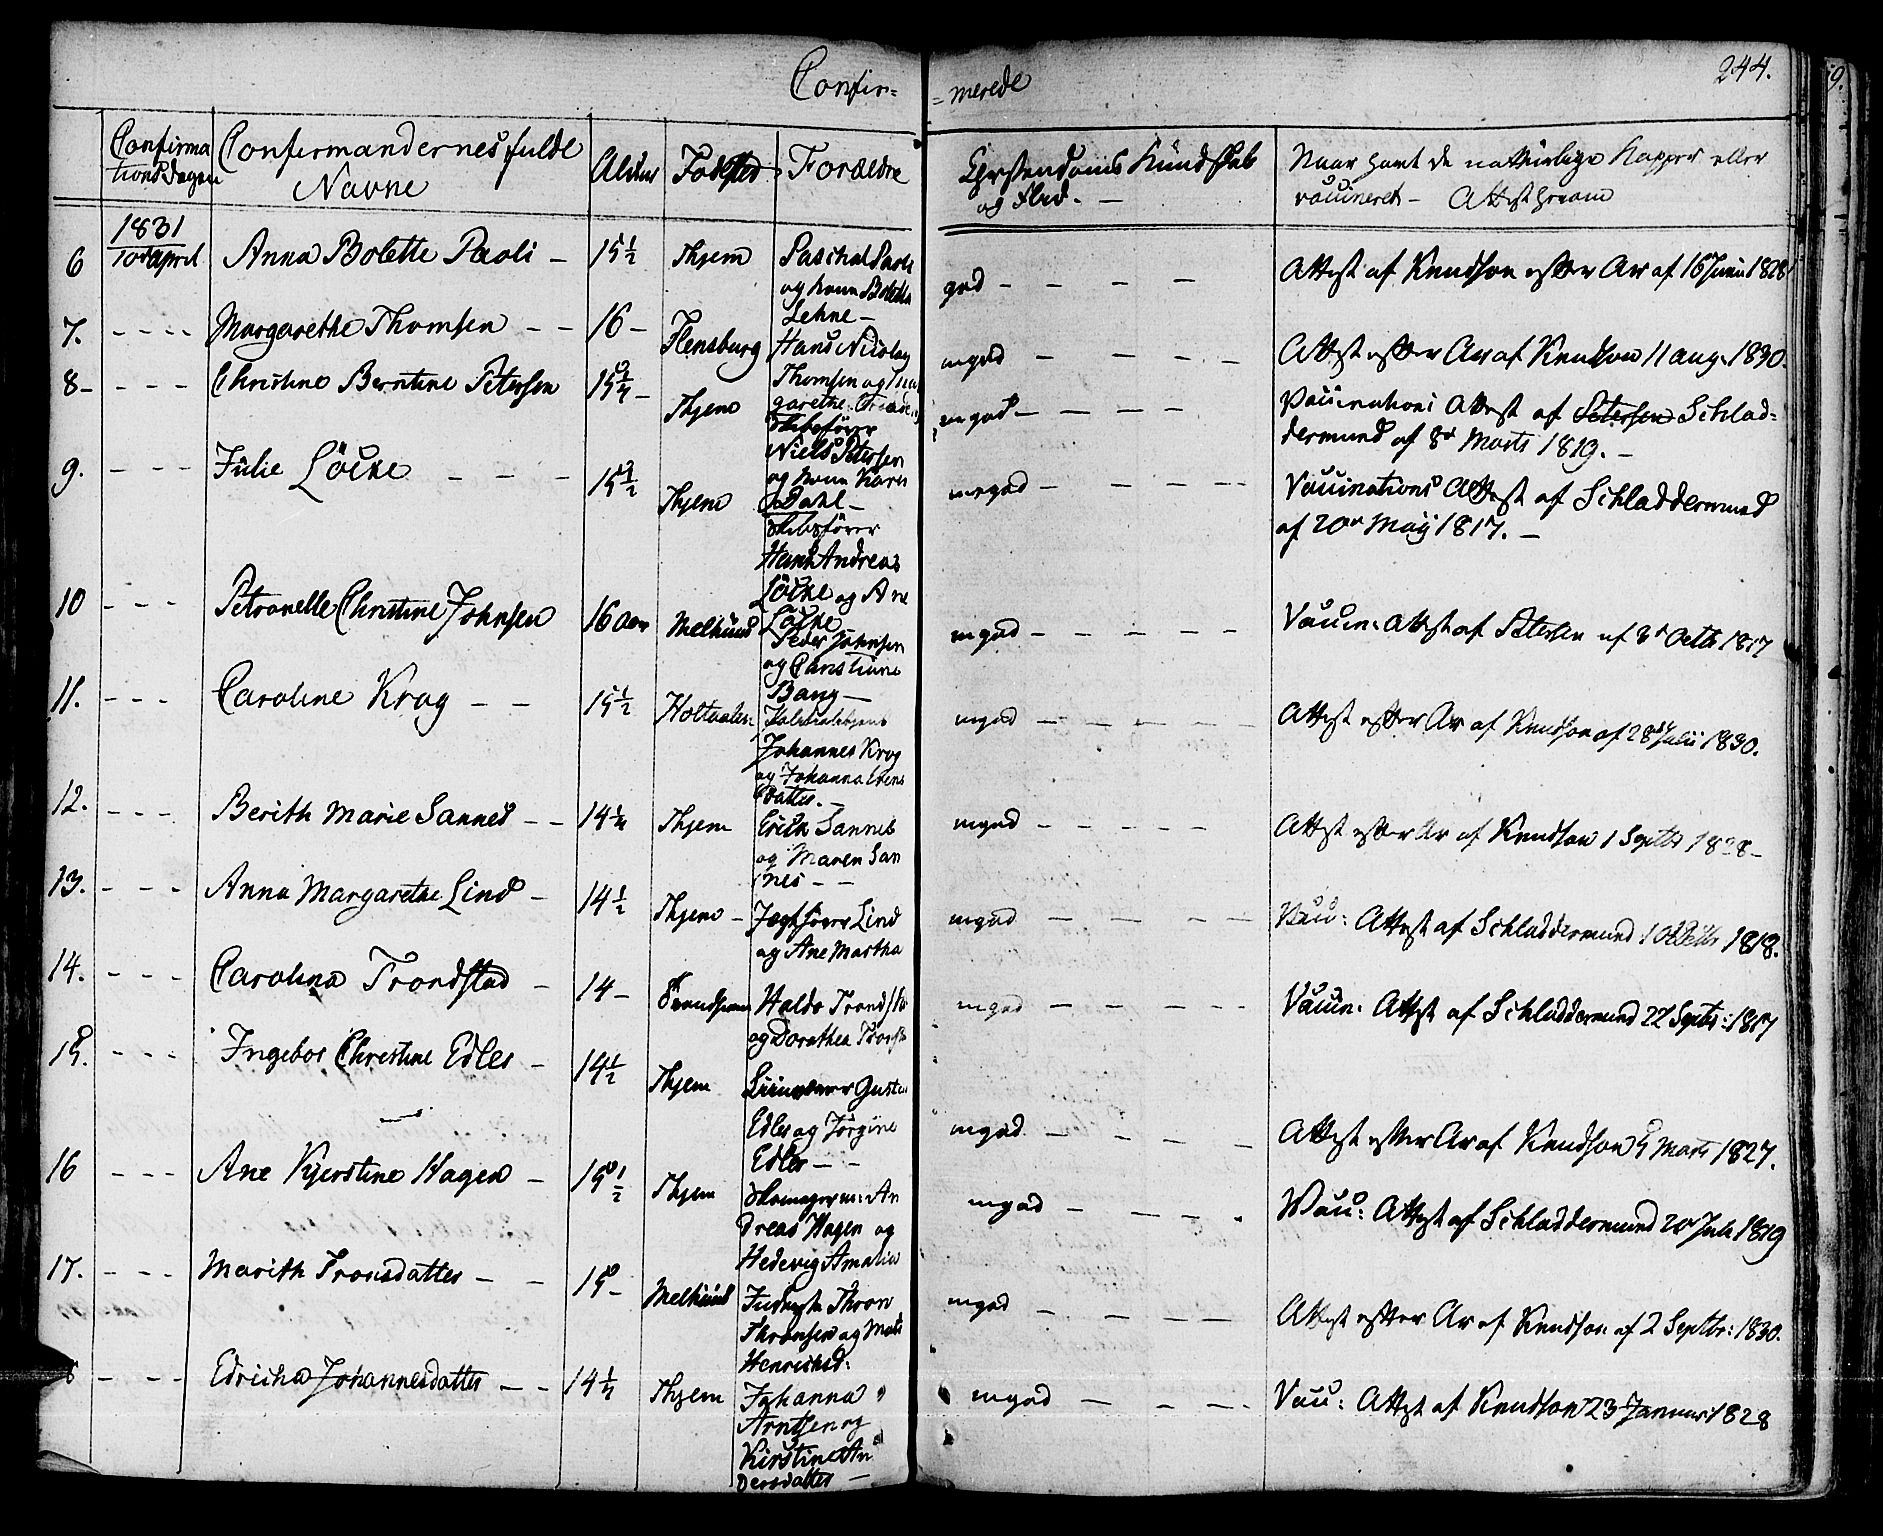 Confir=
=merede
244.
Confirma
tionsdagen
Confirmandernes fulde
Navne
Alder
Fødsted
Forældre
Christendoms Kundskab
og Flid. -
Naar havt de naturlige Kopper eller
vaccineret - Attest herom
1831
6 10de April Anna Bolette Paoli - 15½ Thjem Paschal Paoli
og Kone Bolette
Lehne -
god - - - - Attest af Knudson efter Ar af 16 Junii 1828
7. - - - - Margarethe Thomsen - - 16 - Flensburg Hans Nicolay
Thomsen og
garethe
mgod - - - - Attest efter Ar af Knudson 11 Aug. 1830.
8 - - - - - Christine Berntine Petersen 15¼ - Thjem Skibsfører
Niels Petersen
og Kone Karen
Dahl -
mgod - - - - Vaccinations Attest af Petersen Schlad=
dermund af 8de Marts 1819. -
9. - - - Julie Löcke - - - 15½ Thjem Skibsfører
Hans Andreas
Löcke og Ane
Löcke
mgod - - - - Vaccinations Attest af Schladdermund
af 20de May 1817. -
10 - - - Petronelle Christine Johnsen 16 Aar Melhuus Peder Johnsen
og Christiane
Bang -
mgod - - - - Vaccin: Attest af Petersen af 3de Octb 1817
11. - - - Caroline Krog - - 15½ Holtaalen
Johannes Krog
og Johanna
datter. -
mgod - - - - Attest efter Ar af Knudson af 28de Julii 1830.
12. - - - Berith Marie Sannes - - 14¼ Thjem Erich Sannes
og Maren San
nes - -
mgod - - - - Attest efter Ar af Knudson 1 Septbr 1828 -
13. - - - Anna Margarethe Lind - 14½ Thjem - Jægtfører Lind
og Ane Martha
mgod - - - - Vacc: Attest af Schladdermund 1 Octbr 1818.
14. - - - Carolina Trondstad - 14 - Haldo Trondst
og Dorothea
mgod - - - - Vaccin: Attest af Schladdermund 22 Septbr: 1817
15. - - - Ingebor Christine Edler - 14½ Thjem
Edler og Jørgine
Edler - -
mgod - - - - Attest efter Ar af Knudson 5 Marts 1827.
16 - - - Ane Kjerstine Hagen - 15½ Thjem Skomagerm: An
dreas Hagen og
Hedevig Amalia
mgod - - - - Vacc: Attest af Schladdermund 20de Juli 1819
17. - - - Marith Tronsdatter - - 15 - Melhuus Thron
Thronsen og
Henrichsd:
mgod - - - - Attest efter Ar af Knudson af 2 Septbr: 1830.
- - - Edricha Johannesdatter - - 14¼ Thjem Johanna
Arntsen og
Kirstine An
dersdatter -
mgod - - - Vacc: Attest af Knudson 23 Januar 1828